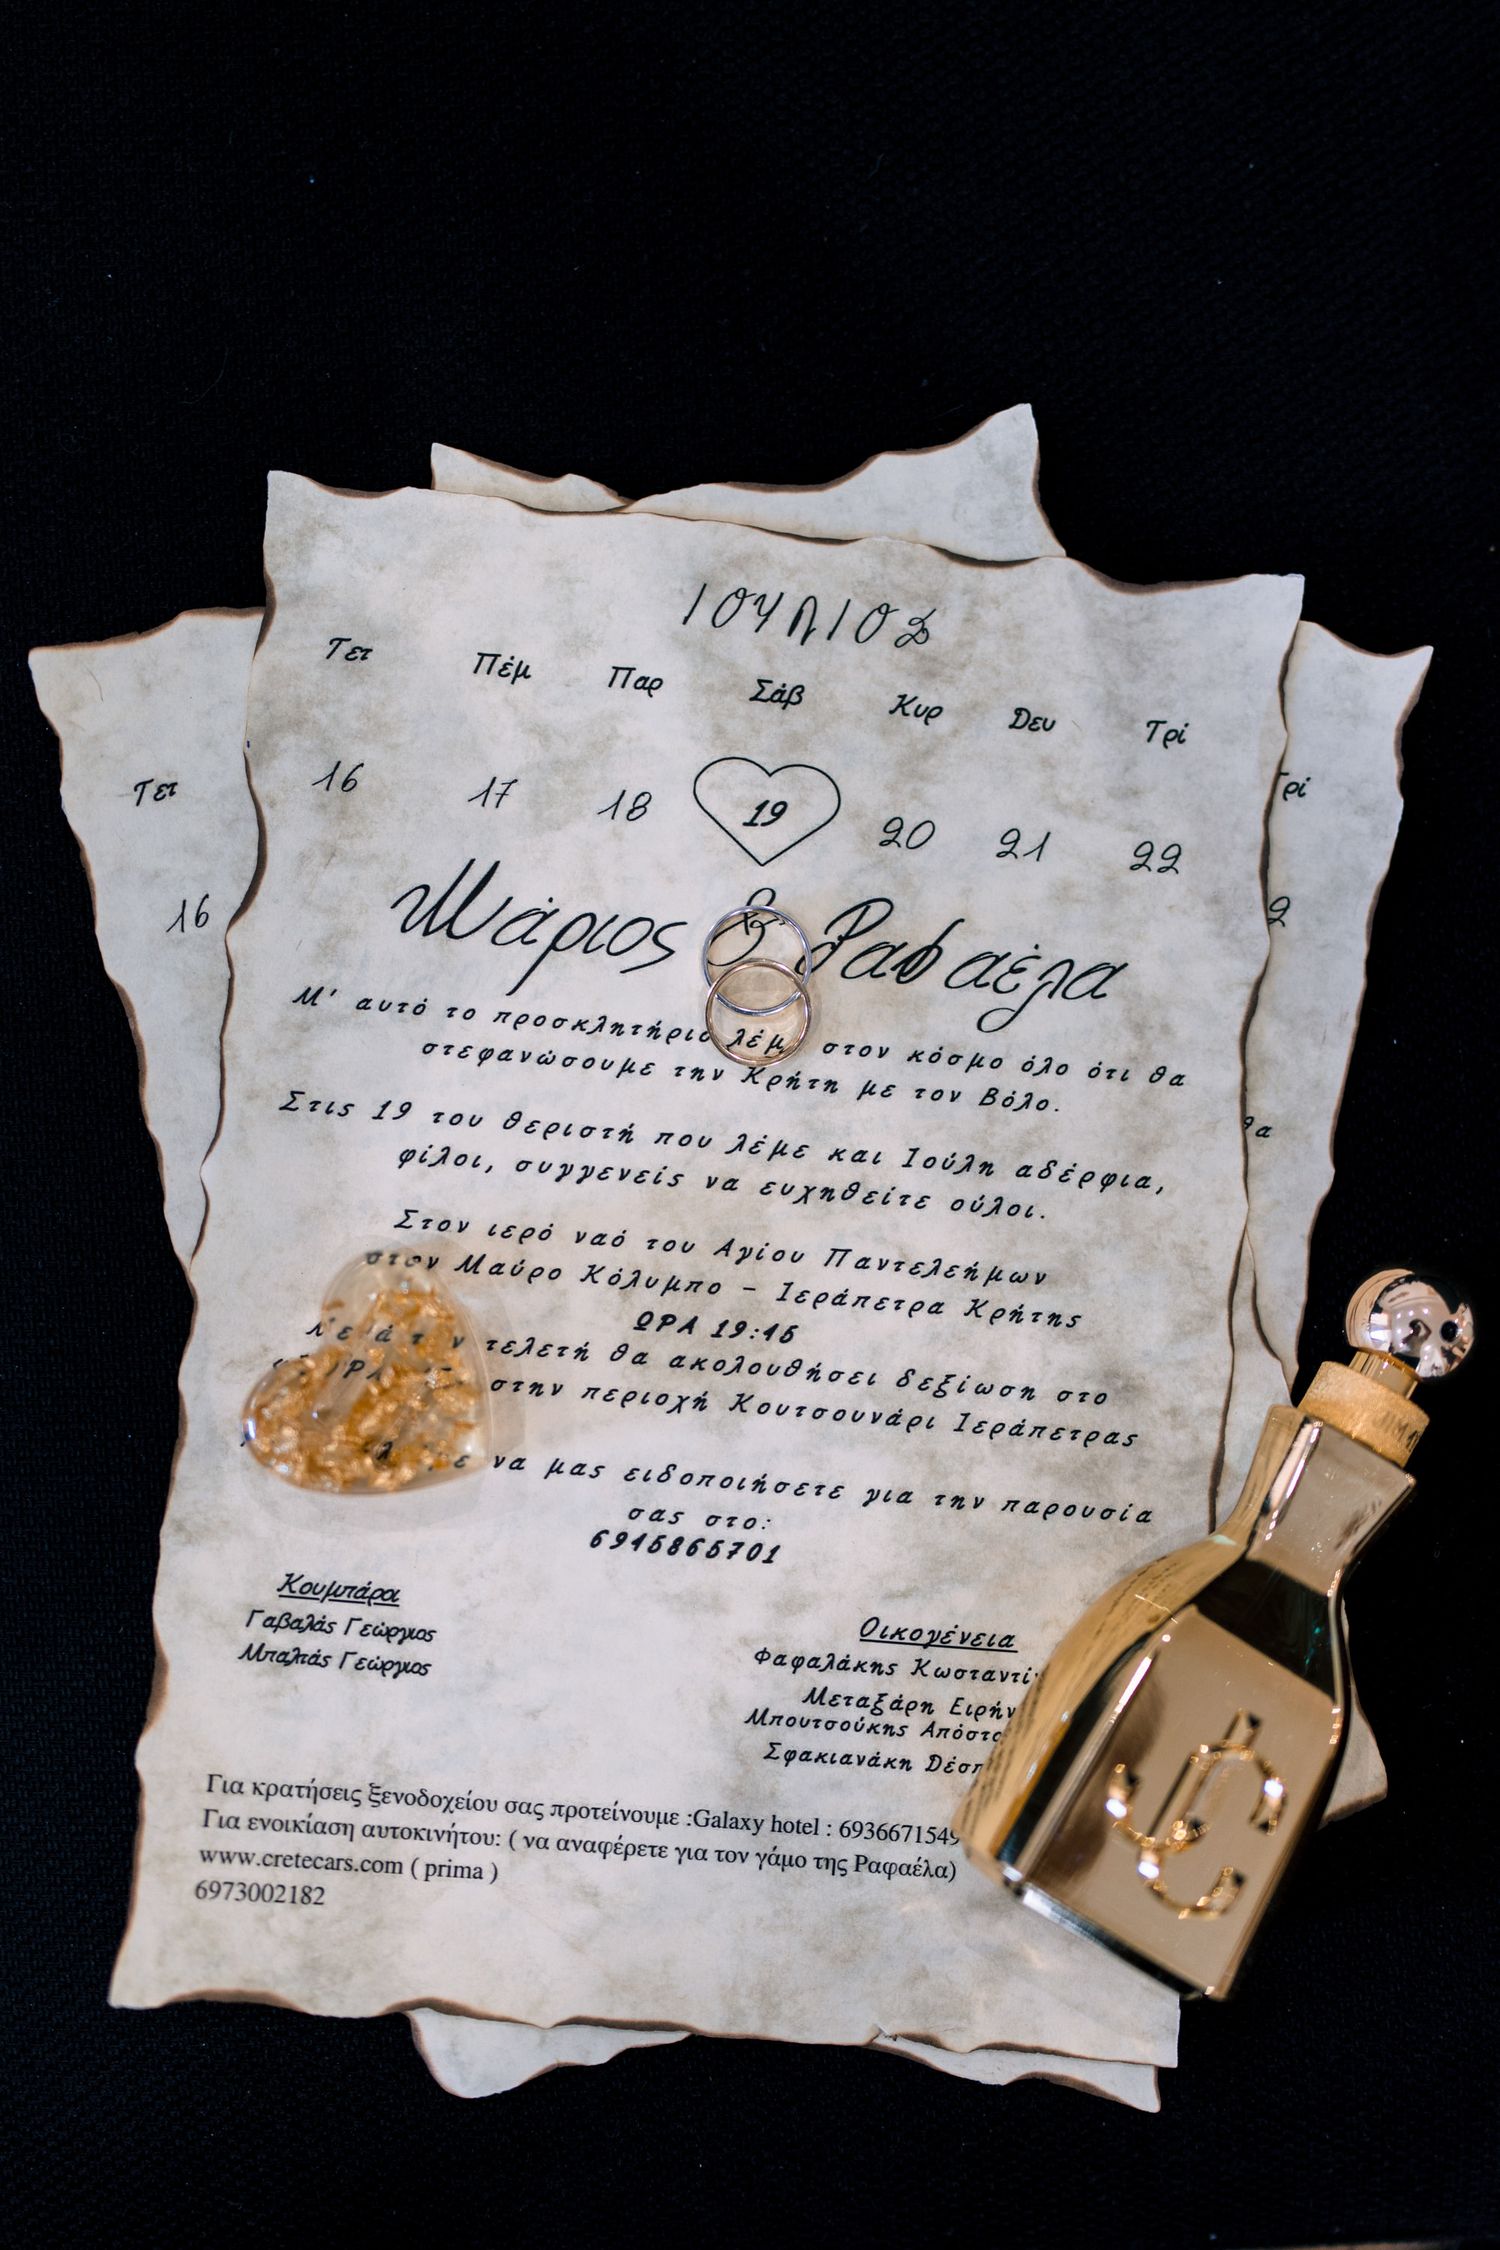 ΙΟΥΛΙΟΣ
Τετ Πέμ Παρ Σάβ Κυρ Δευ Τρί
16 17 18 19 20 21 22
Μάριος & Ραφαέλα
Μ' αυτό το προσκλητήριο λέμε στον κόσμο όλο ότι θα
στεφανώσουμε την Κρήτη με τον Βόλο.
Στις 19 του θεριστή που λέμε και Ιούλη αδέρφια,
φίλοι, συγγενείς να ευχηθείτε ούλοι.
Στον ιερό ναό του Αγίου Παντελεήμων
στον Μαύρο Κόλυμπο - Ιεράπετρα Κρήτης
ΩΡΑ 19:15
τελετή θα ακολουθήσει δεξίωση στο
στην περιοχή Κουτσουνάρι Ιεράπετρας
να μας ειδοποιήσετε για την παρουσία
σας στο:
6915865701
Κουμπάροι
Γαβαλάς Γεώργιος
Μπαλτάς Γεώργιος
Οικογένεια
Φαφαλάκης
Μεταξάρη
Μπουτσούκης
Σφακιανάκη
Για κρατήσεις ξενοδοχείου σας προτείνουμε :Galaxy hotel : 6936671549
Για ενοικίαση αυτοκινήτου: ( να αναφέρετε για τον γάμο της Ραφαέλα)
www.cretecars.com ( prima )
6973002182
Τετ
16
θα